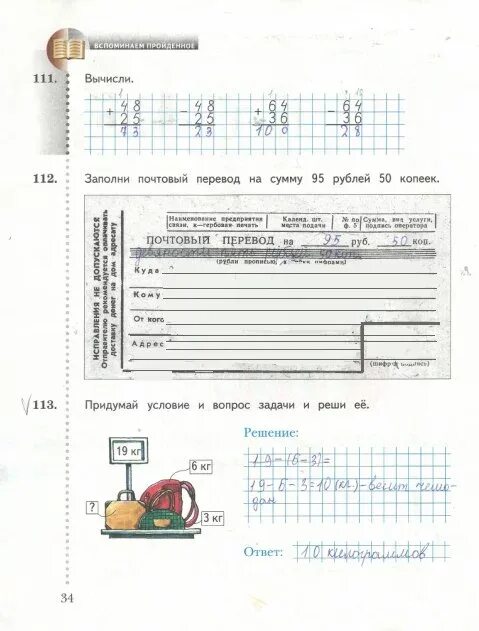 ВСПОМИНАЕМ ПРОЙДЕННОЕ
111. Вычисли.
+ 48 25 73
- 48 25 23
+ 64 36 100
- 64 36 28
112. Заполни почтовый перевод на сумму 95 рублей 50 копеек.
ИСПРАВЛЕНИЯ НЕ ДОПУСКАЮТСЯ
Отправителю рекомендуется оплачивать
доставку денег на дом адресату
Наименование предприятия связи, к—гербовая печать
Календ. шт. места подачи
№ по ф. 5
Сумма, вид услуги, подпись оператора
ПОЧТОВЫЙ ПЕРЕВОД на 95 руб. 50 коп.
девяносто пять рублей 50 коп.
(рубли прописью, к цифрами)
Куда
Кому
От кого
Адрес
(шифр и подпись)
113. Придумай условие и вопрос задачи и реши её.
19 кг
6 кг
?
3 кг
Решение:
19-(6-3)=
19-6-3=10(кг)-весит чемо-
дан
Ответ: 10 килограммов
34